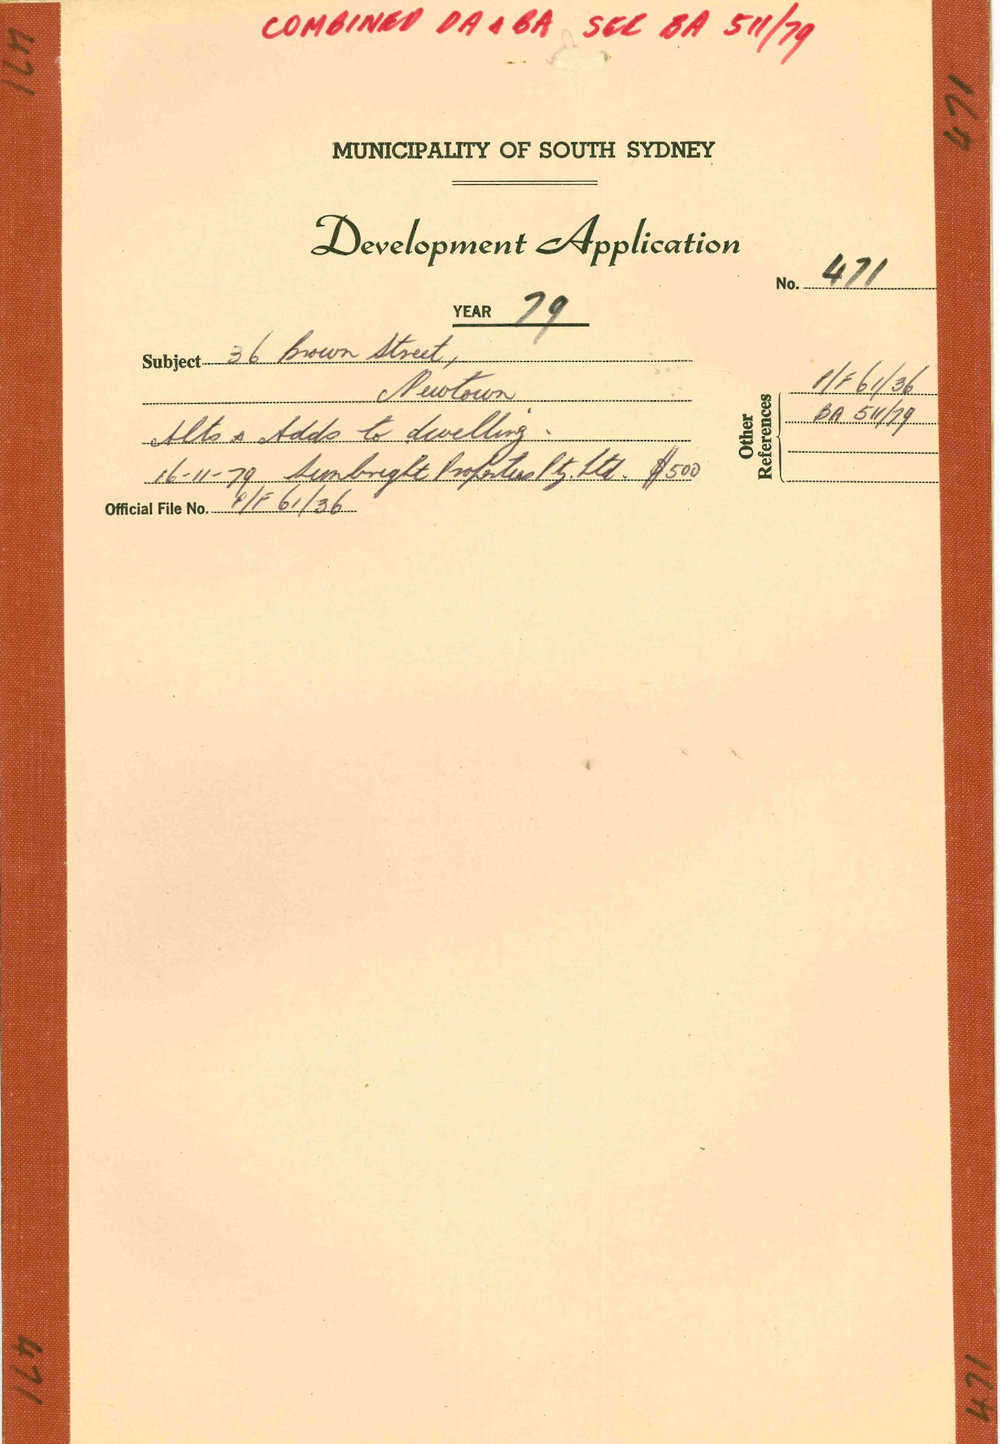 COMBINED DA & BA SEE BA 511/79
471
471
MUNICIPALITY OF SOUTH SYDNEY
Development Application
No. 471
YEAR 79
Subject 36 Brown Street,
Newtown
Alts & Adds to dwelling.
16-11-79 Sunbright Properties Pty. Ltd. $500
Official File No. P/F 61/36
Other References
P/F 61/36
BA 511/79
471
471